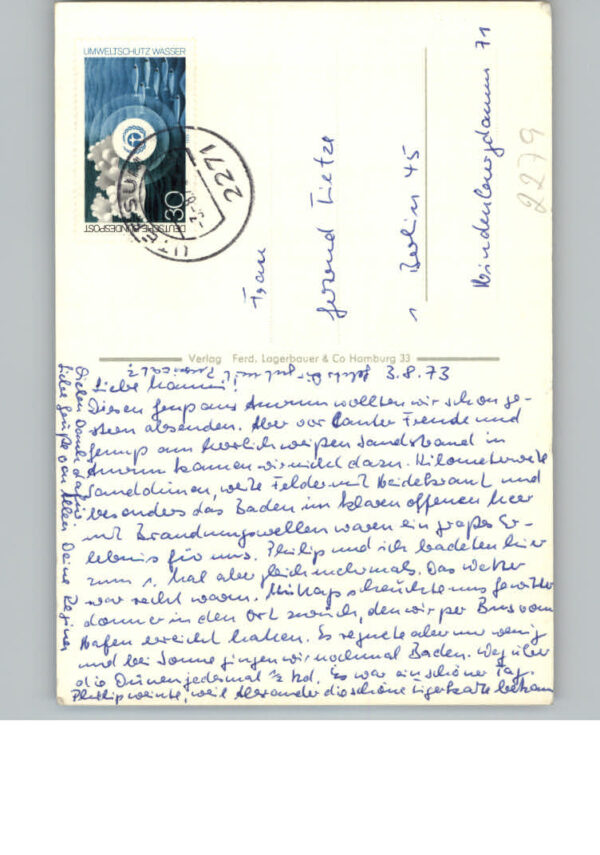 UMWELTSCHUTZ WASSER
30
DEUTSCHE BUNDESPOST
2271
Frau
Tietze
1 Berlin 45
Hindenburgdamm 71
2279
Verlag Ferd. Lagerbauer & Co Hamburg 33
3.8.73
Liebe Mammi!
Diesen Gruß aus Amrum wollten wir schon ge-
stern absenden. Aber vor lauter Freude und
am herrlich weißen Sandstrand in
Amrum kamen wir nicht dazu. Kilometerweite
Sanddünen, weite Felder mit Heidekraut und
besonders das Baden im klaren offenen Meer
mit Brandungswellen waren ein großes Er-
lebnis für uns. Philip und ich badeten hier
zum 1. Mal aber gleich mehrmals. Das Wetter
war recht warm. Mittags scheuchte uns Gewitter
donner in den Ort zurück, den wir per Bus vom
Hafen erreicht hatten. Es regnete aber nur wenig
und bei Sonne gingen wir nochmal Baden. Weg über
die Dünen jedesmal ½ Std. Es war ein schöner Tag.
Philip weinte, weil Alexander die schöne Tigerkarte bekam
Vielen Dank dafür.
Liebe Grüße von Allen Deine Regine